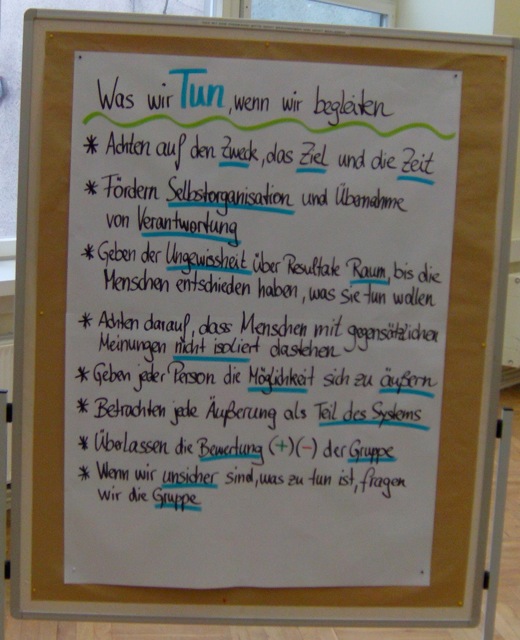 Was wir Tun, wenn wir begleiten
* Achten auf den Zweck, das Ziel und die Zeit
* Fördern Selbstorganisation und Übernahme
von Verantwortung
* Geben der Ungewissheit über Resultate Raum, bis die
Menschen entschieden haben, was sie tun wollen
* Achten darauf, dass Menschen mit gegensätzlichen
Meinungen nicht isoliert dastehen
* Geben jeder Person die Möglichkeit sich zu äußern
* Betrachten jede Äußerung als Teil des Systems
* Überlassen die Bewertung (+)(-) der Gruppe
* Wenn wir unsicher sind, was zu tun ist, fragen
wir die Gruppe